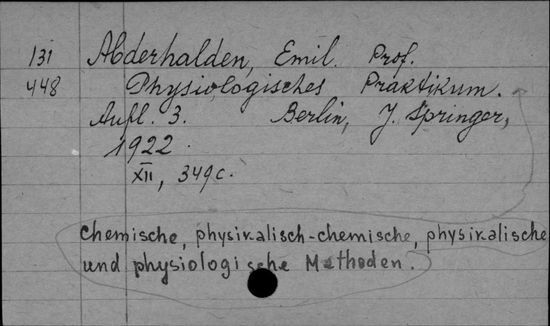 131 Abderhalden, Emil. Prof.
448 Physiologisches Praktikum.
Aufl. 3. Berlin, J. Springer,
1922.
XII, 349c.
Chemische, physikalisch-chemische, physikalische
und physiologische Methoden.